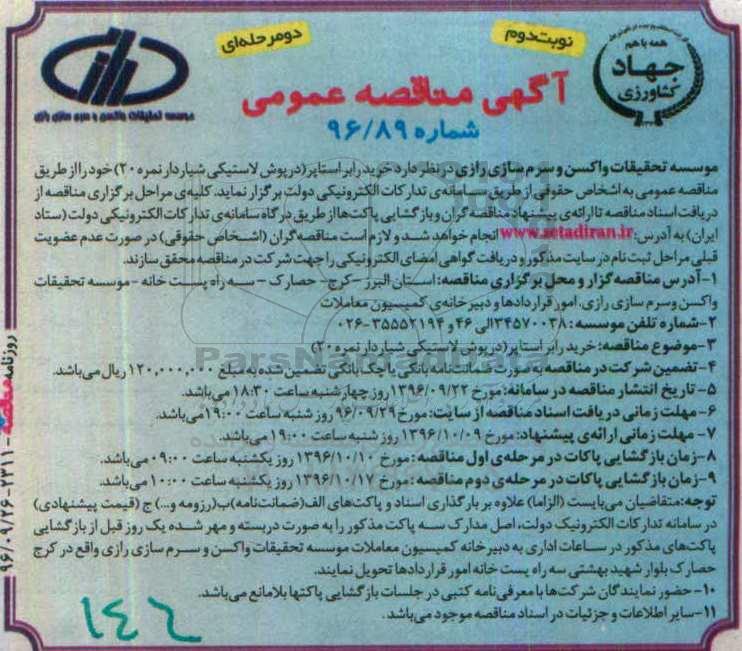 همه با هم
جهاد
کشاورزی
نوبت دوم
دو مرحله‌ای
موسسه تحقیقات واکسن و سرم سازی رازی
آگهی مناقصه عمومی
شماره ۹۶/۸۹
موسسه تحقیقات واکسن و سرم سازی رازی در نظر دارد خرید رابر استاپر (درپوش لاستیکی شیاردار نمره ۲۰) خود را از طریق
مناقصه عمومی به اشخاص حقوقی از طریق سامانه‌ی تدارکات الکترونیکی دولت برگزار نماید. کلیه‌ی مراحل برگزاری مناقصه از
دریافت اسناد مناقصه تا ارائه‌ی پیشنهاد مناقصه گران و بازگشایی پاکت‌ها از طریق درگاه سامانه‌ی تدارکات الکترونیکی دولت (ستاد
ایران) به آدرس: www.setadiran.ir انجام خواهد شد و لازم است مناقصه گران (اشخاص حقوقی) در صورت عدم عضویت
قبلی مراحل ثبت نام در سایت مذکور و دریافت گواهی امضای الکترونیکی را جهت شرکت در مناقصه محقق سازند.
۱-آدرس مناقصه گزار و محل برگزاری مناقصه: استان البرز -کرج- حصارک - سه راه پست خانه -موسسه تحقیقات
واکسن و سرم سازی رازی، امور قراردادها و دبیرخانه‌ی کمیسیون معاملات
۲-شماره تلفن موسسه: ۳۴۵۷۰۰۳۸ الی ۴۶ و ۳۵۵۵۲۱۹۴-۰۲۶
۳-موضوع مناقصه: خرید رابر استاپر (درپوش لاستیکی شیاردار نمره ۲۰)
۴-تضمین شرکت در مناقصه به صورت ضمانت نامه بانکی یا چک بانکی تضمین شده به مبلغ ۱۲۰,۰۰۰,۰۰۰ ریال می‌باشد.
۵- تاریخ انتشار مناقصه در سامانه: مورخ ۱۳۹۶/۰۹/۲۲ روز چهارشنبه ساعت ۱۸:۳۰ می‌باشد.
۶- مهلت زمانی دریافت اسناد مناقصه از سایت: مورخ ۹۶/۰۹/۲۹ روز شنبه ساعت ۱۹:۰۰ می‌باشد.
۷- مهلت زمانی ارائه‌ی پیشنهاد: مورخ ۱۳۹۶/۱۰/۰۹ روز شنبه ساعت ۱۹:۰۰ می‌باشد.
۸-زمان بازگشایی پاکات در مرحله‌ی اول مناقصه: مورخ ۱۳۹۶/۱۰/۱۰ روز یکشنبه ساعت ۰۹:۰۰ می‌باشد.
۹-زمان بازگشایی پاکات در مرحله‌ی دوم مناقصه: مورخ ۱۳۹۶/۱۰/۱۷ روز یکشنبه ساعت ۱۰:۰۰ می‌باشد.
توجه: متقاضیان می‌بایست (الزاما) علاوه بر بارگذاری اسناد و پاکت‌های الف (ضمانت‌نامه) ب (رزومه و...) ج (قیمت پیشنهادی)
در سامانه تدارکات الکترونیک دولت، اصل مدارک سه پاکت مذکور را به صورت دربسته و مهر شده یک روز قبل از بازگشایی
پاکت‌های مذکور در ساعات اداری به دبیرخانه کمیسیون معاملات موسسه تحقیقات واکسن و سرم سازی رازی واقع در کرج
حصارک بلوار شهید بهشتی سه راه پست خانه امور قراردادها تحویل نمایند.
۱۰-حضور نمایندگان شرکت‌ها با معرفی‌نامه کتبی در جلسات بازگشایی پاکتها بلامانع می‌باشد.
۱۱-سایر اطلاعات و جزئیات در اسناد مناقصه موجود می‌باشد.
۱۴۶
روزنامه مناقصه - ۲۲۱۱ - ۹۶/۰۹/۲۶
ParsNamadData